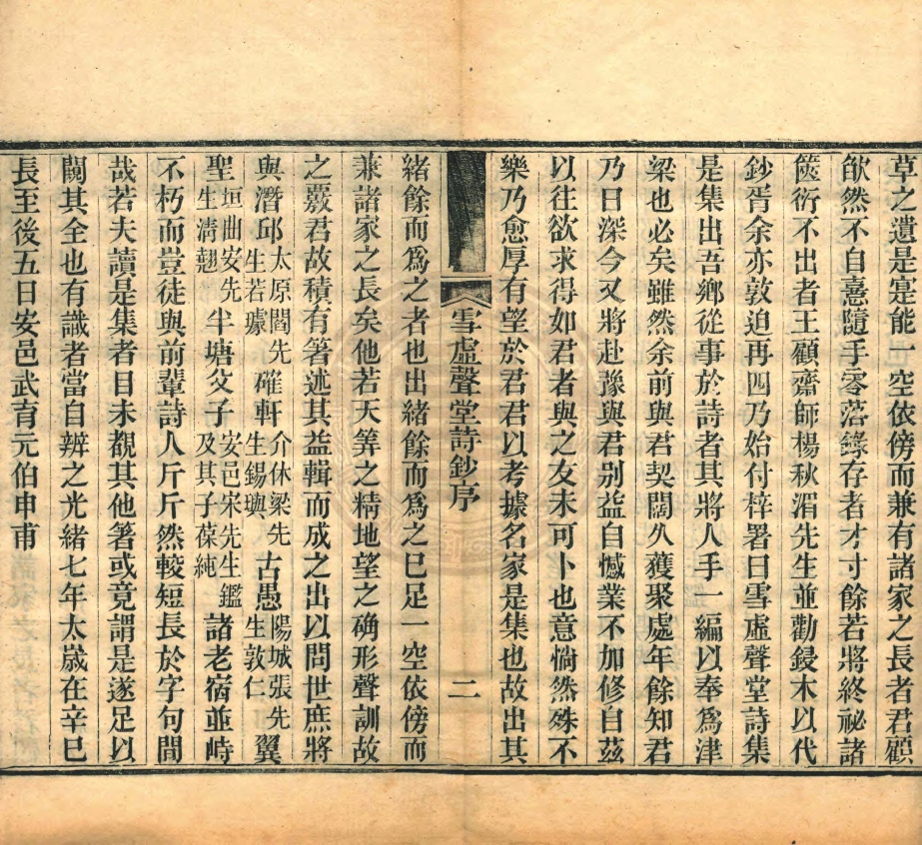 草之遺是寔能一空依傍而兼有諸家之長者君顧
飲然不自憙隨手零落錄存者才寸餘若將終祕諸
篋衍不出者王顧齋師楊秋湄先生並勸鋟木以代
鈔胥余亦敦迫再四乃始付梓署曰雪虛聲堂詩集
是集出吾鄉從事於詩者其將人手一編以奉爲津
梁也必矣雖然余前與君契闊久獲聚處年餘知君
乃日深今又將赴豫與君别益自憾業不加修自茲
以往欲求得如君者與之友未可卜也意惘然殊不
樂乃愈厚有望於君君以考據名家是集也故出其
雪虛聲堂詩鈔序 二
緒餘而爲之者也出緒餘而爲之已足一空依傍而
兼諸家之長矣他若天筭之精地望之确形聲訓故
之覈君故積有箸述其益輯而成之出以問世庶將
與潛邱太原閻先生若璩確軒介休梁先生錫璵古愚陽城張先生敦仁翼
聖垣曲安先生清翹半塘父子安邑宋先生鑑及其子葆純諸老宿並峙
不朽而豈徒與前輩詩人斤斤然較短長於字句間
哉若夫讀是集者目未覩其他箸或竟謂是遂足以
闚其全也有識者當自辨之光緒七年太歲在辛巳
長至後五日安邑武育元伯申甫